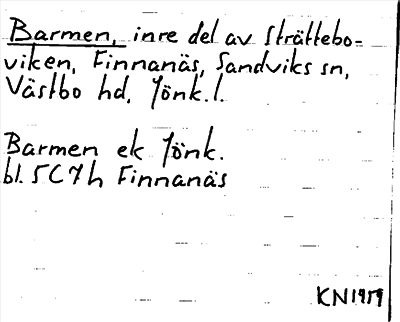 Barmen, inre del av Strättebo-
viken, Finnanäs, Sandviks sn,
Västbo hd, Jönk. l.
Barmen ek Jönk.
bl. 5C7h Finnanäs
KN1959